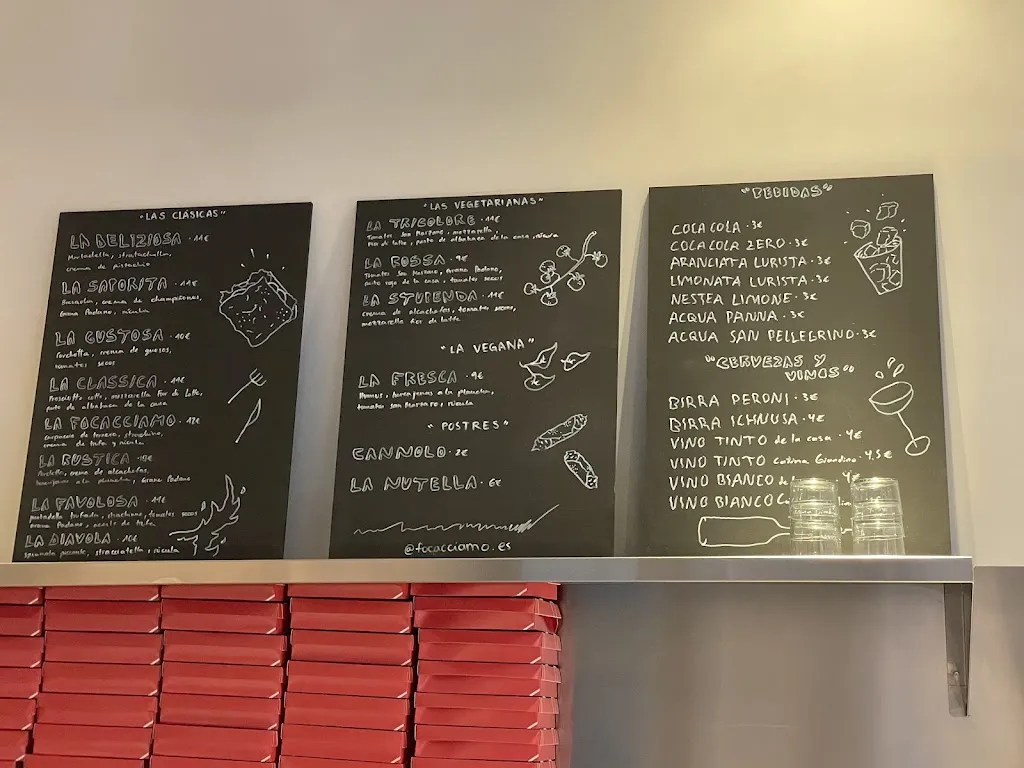 "LAS CLÁSICAS"
LA DELIZIOSA · 11€
Mortadella, stracciatella,
crema de pistacho
LA SAPORITA · 11€
Bresaola, crema de champiñones,
Grana Padano, rúcula
LA GUSTOSA · 10€
Porchetta, crema de quesos,
tomates secos
LA CLASSICA · 11€
Prosciutto cotto, mozzarella Fior di latte,
pesto de albahaca de la casa
LA FOCACCIAMO · 12€
carpaccio de ternera, stracchino,
crema de trufa y rúcula
LA RUSTICA
crema de alcachofas,
berenjenas a la plancha, Grana Padano
LA FAVOLOSA · 11€
mortadella trufada, stracchino, tomates secos
Grana Padano, aceite de trufa
LA DIAVOLA · 10€
spianata picante, stracciatella, rúcula
"LAS VEGETARIANAS"
LA TRICOLORE · 11€
Tomates San Marzano, mozzarella
Fior di latte, pesto de albahaca de la casa, rúcula
LA ROSSA · 9€
Tomates San Marzano, Grana Padano,
pesto rojo de la casa, tomates secos
LA STUPENDA · 11€
Crema de alcachofas, tomates secos,
mozzarella fior di latte
"LA VEGANA"
LA FRESCA · 9€
Hummus, berenjenas a la plancha,
tomates San Marzano, rúcula
"POSTRES"
CANNOLO · 2€
LA NUTELLA · 6€
@focacciamo.es
"BEBIDAS"
COCA COLA · 3€
COCA COLA ZERO · 3€
ARANCIATA LURISIA · 3€
LIMONATA LURISIA · 3€
NESTEA LIMONE · 3€
ACQUA PANNA · 3€
ACQUA SAN PELLEGRINO · 3€
"CERVEZAS Y
VINOS"
BIRRA PERONI · 3€
BIRRA ICHNUSA · 4€
VINO TINTO de la casa · 4€
VINO TINTO 4,5€
VINO BIANCO 4€
VINO BIANCO